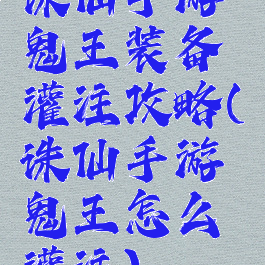 诛仙手游
鬼王装备
灌注攻略(
诛仙手游
鬼王怎么
灌注)